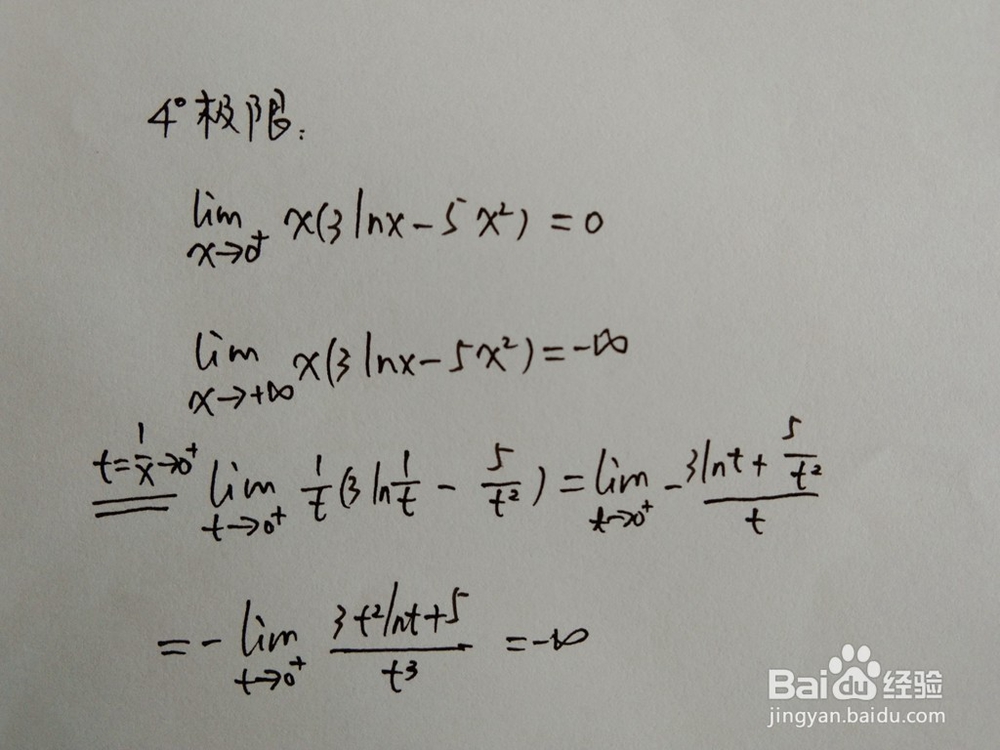 4°极限：
lim x→0⁺ x(3lnx-5x²)=0
lim x→+∞ x(3lnx-5x²)=-∞
t=1/x→0⁺ lim t→0⁺ 1/t(3ln1/t - 5/t²)=lim t→0⁺ -(3lnt+5/t²)/t
=-lim t→0⁺ (3t²lnt+5)/t³ =-∞
Baidu经验
jingyan.baidu.com